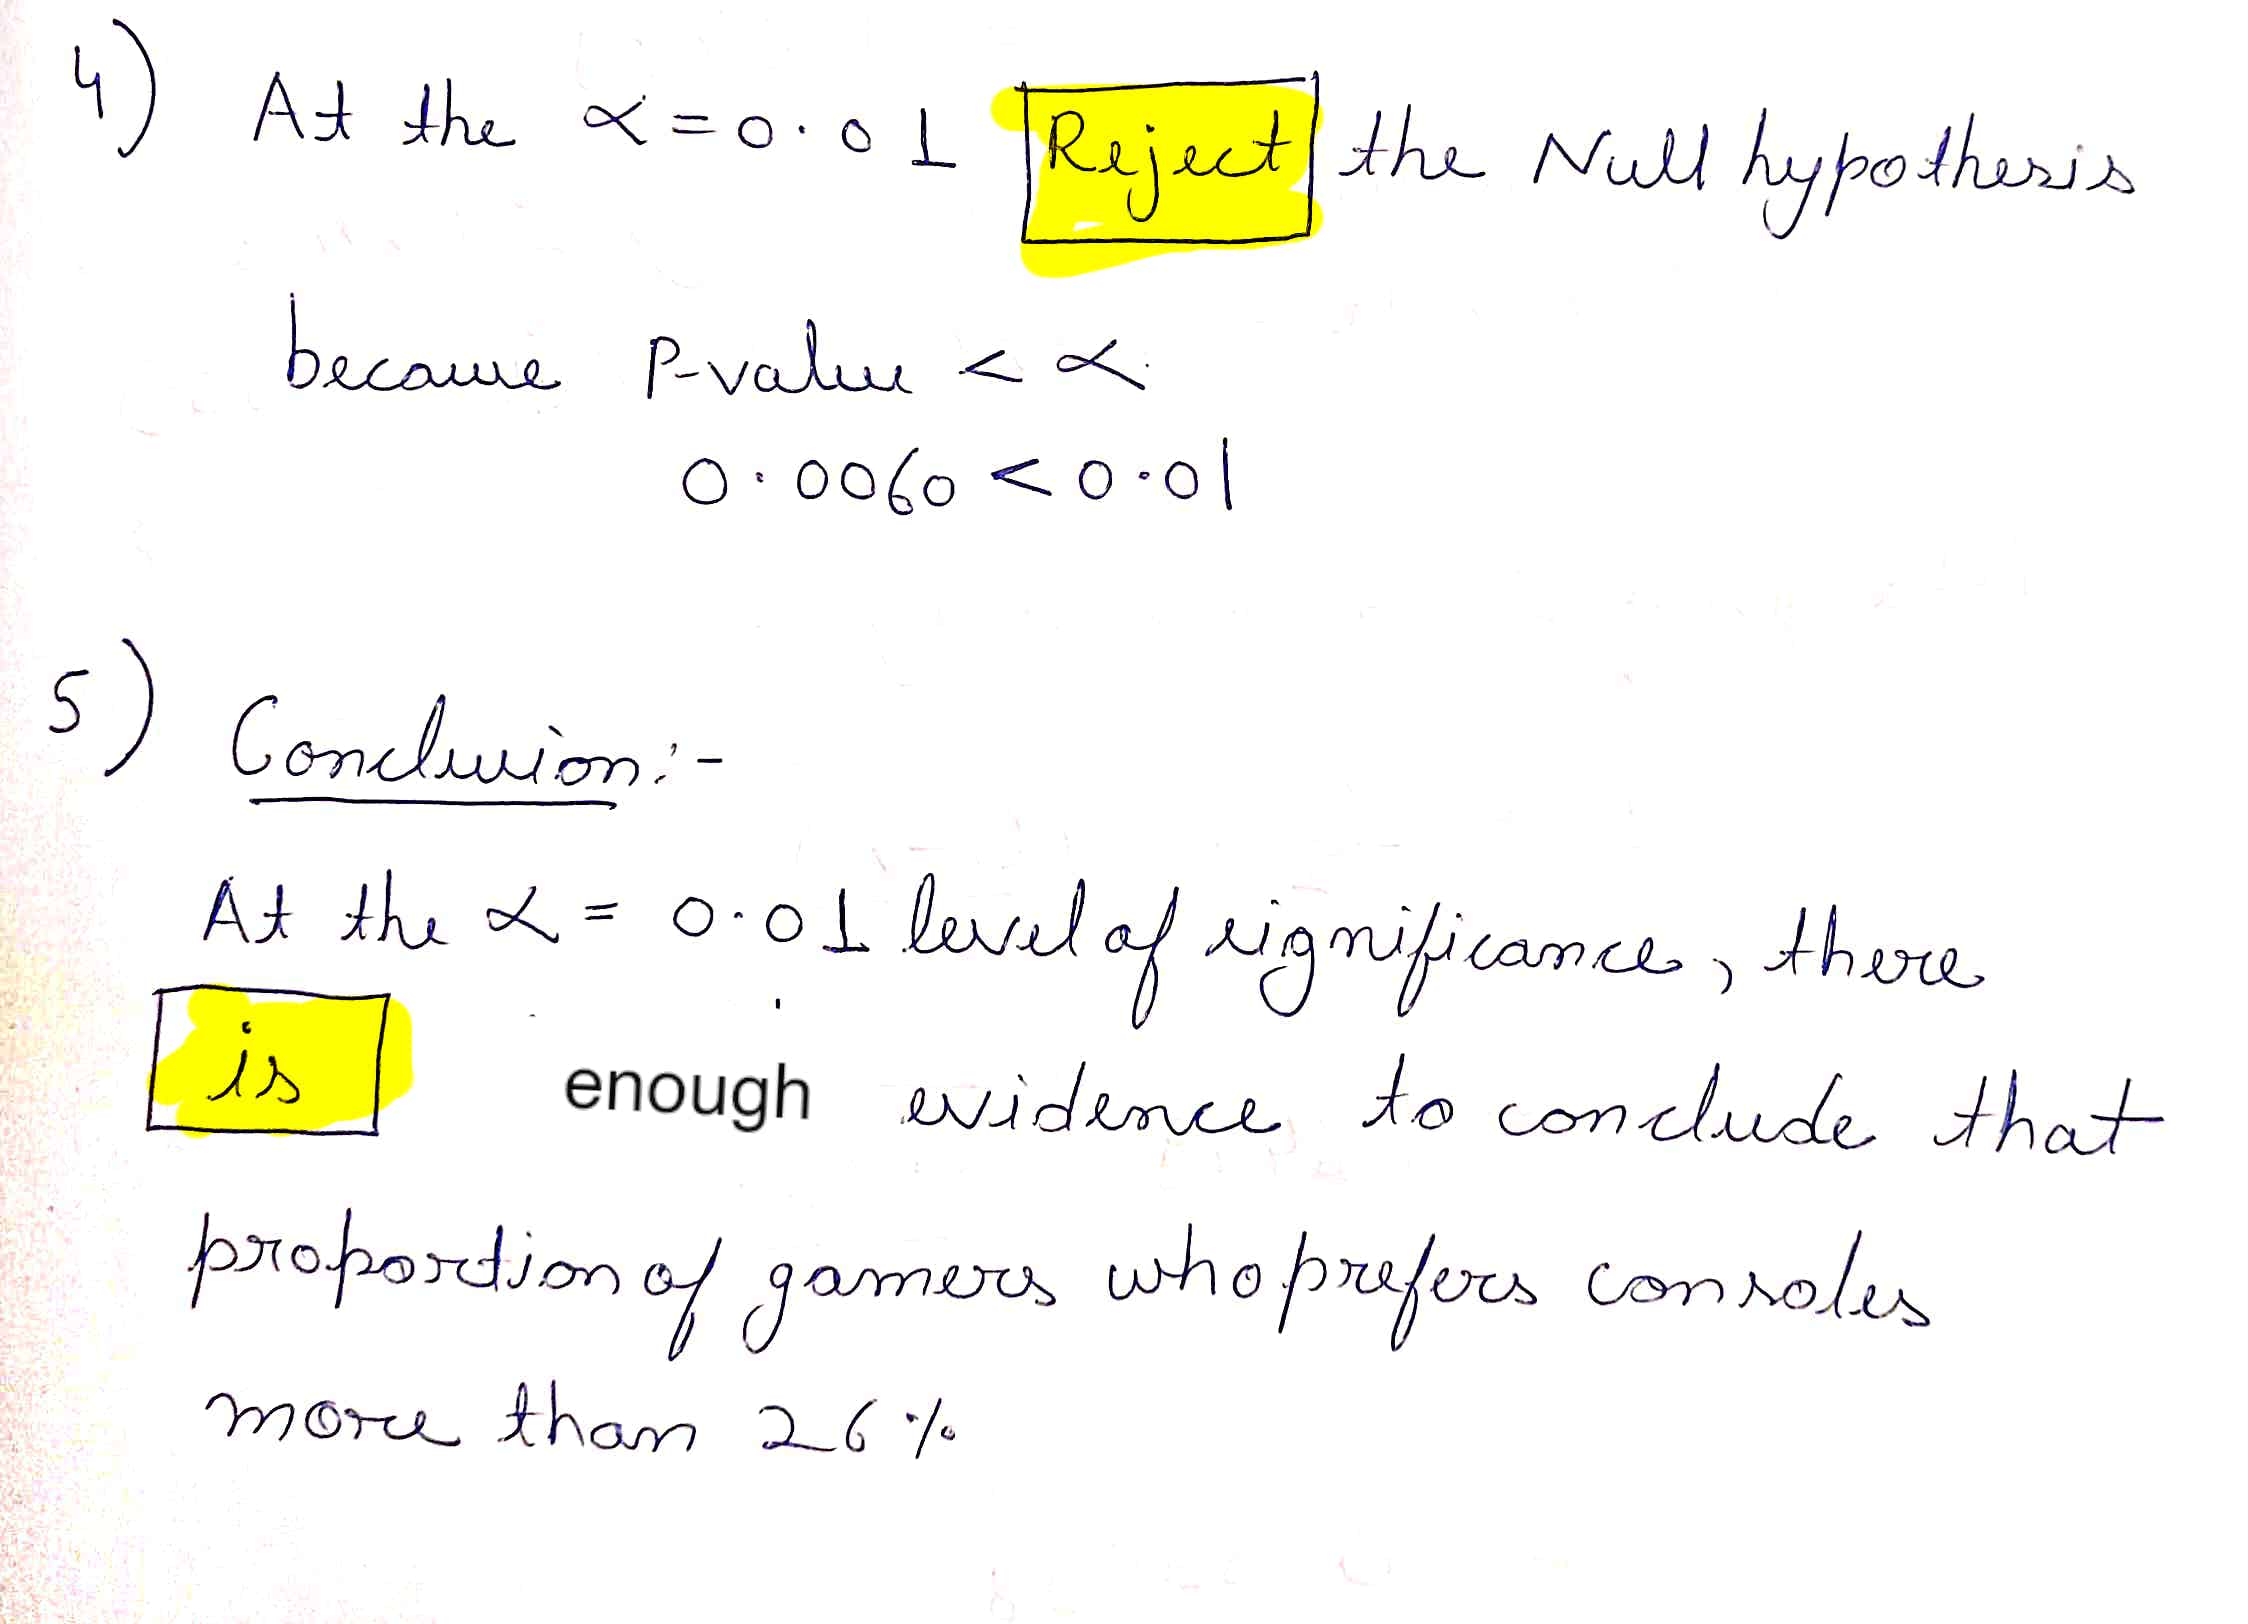 4) At the α = 0.01 Reject the Null hypothesis
because P-value < α
0.0060 < 0.01
5) Conclusion:-
At the α = 0.01 level of significance, there
is enough evidence to conclude that
proportion of gamers who prefers consoles
more than 26%